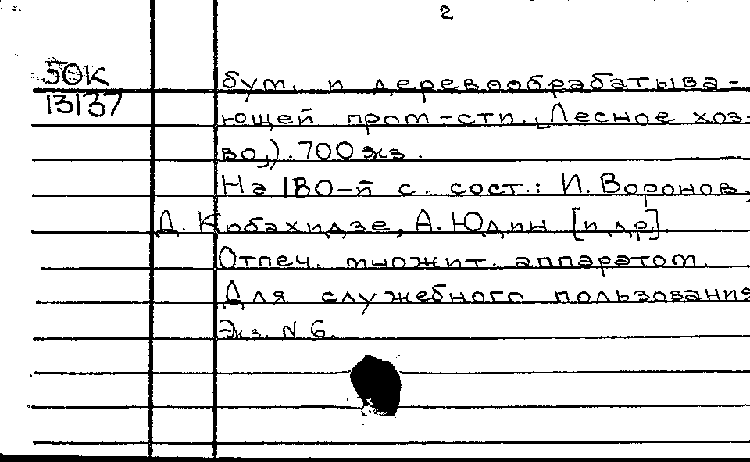 2
50К
13137
бум. и деревообрабатыва-
ющей пром-сти. Лесное хоз-
во,). 700 экз.
На 180-й с. сост.: И. Воронов,
Д. Кобахидзе, А. Юдин [и др.]
Отпеч. множит. аппаратом.
Для служебного пользования
Экз. N 6.